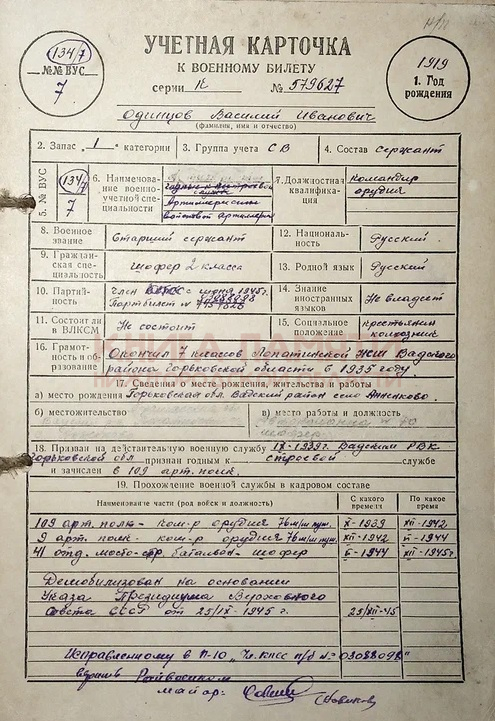 134/7
№№ ВУС
7
УЧЕТНАЯ КАРТОЧКА
К ВОЕННОМУ БИЛЕТУ
серии IК № 579627
1919
1. Год
рождения
Одинцов Василий Иванович
(фамилия, имя и отчество)
2. Запас 1 категории
3. Группа учета СВ
4. Состав сержант
5. № ВУС 134/7 7
6. Наименование военно-учетной специальности
войсковой артиллерии
7. Должностная квалификация командир орудия
8. Военное звание Старший сержант
12. Национальность Русский.
9. Гражданская специальность шофер 2 класса
13. Родной язык Русский
10. Партийность член КПСС с июня 1945г. Партбилет №
14. Знание иностранных языков Не владеет
11. Состоял ли в ВЛКСМ Не состоит
15. Социальное положение крестьянин колхозник
16. Грамотность и образование Окончил 7 классов Лопатинской НСШ Вадского района горьковской области в 1935 году.
17. Сведения о месте рождения, жительства и работы
а) место рождения Горьковская обл. Вадский район село Анненково
б) местожительство
в) место работы и должность
шофер
18. Призван на действительную военную службу IX-1939г. Вадским РВК
Горьковской обл признан годным к строевой службе
и зачислен в 109 арт. полк.
19. Прохождение военной службы в кадровом составе
Наименование части (род войск и должность)
С какого времени
По какое время
109 арт. полк - ком-р орудия 76 м/м пуш. X-1939 XII-1942
9 арт. полк - ком-р орудия 76 м/м пуш. XII-1942 V-1944
41 отд. мосто-стр. баталъон - шофер V-1944 XII-1945г
Демобилизован на основании
Указа Президиума Верховного
Совета СССР от 25/IX-1945 г. 25/XII-45
Исправленному в П-10 „Чл. КПСС п/б № 03088098"
верить Райвоенком
майор:
КНИГА ПАМЯТИ